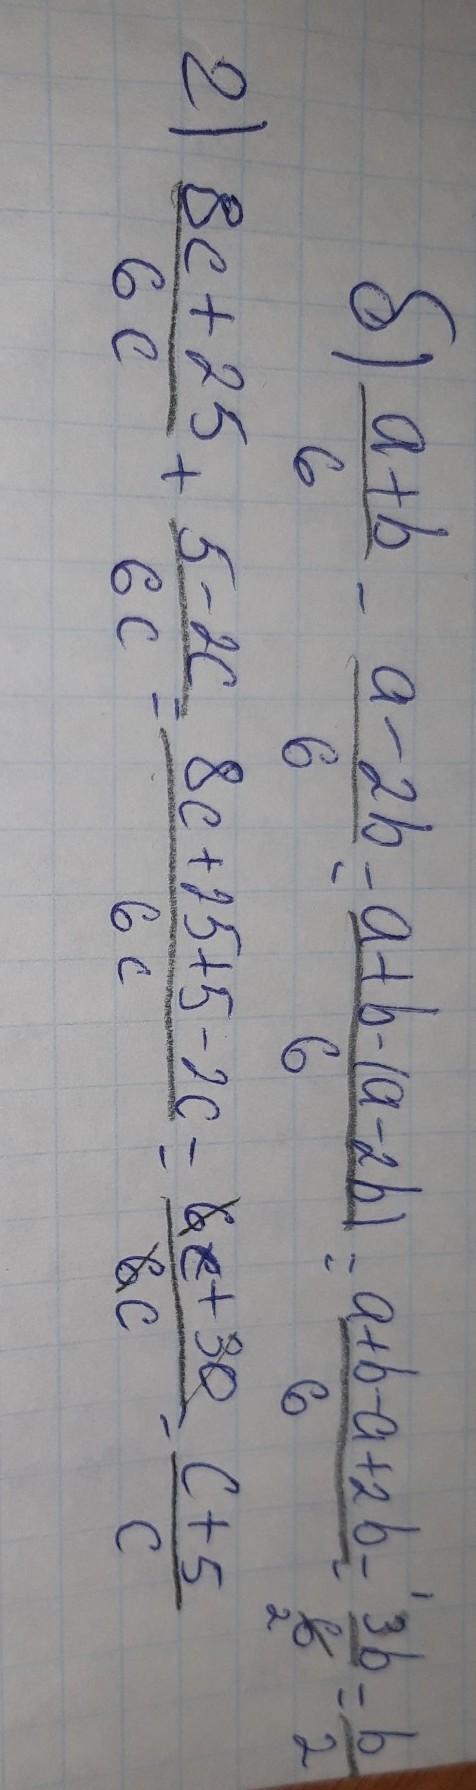 б) (a+b)/6 - (a-2b)/6 = (a+b-(a-2b))/6 = (a+b-a+2b)/6 = 3b/6 = b/2
2) (8c+25)/6c + (5-2c)/6c = (8c+25+5-2c)/6c = (6c+30)/6c = (c+5)/c